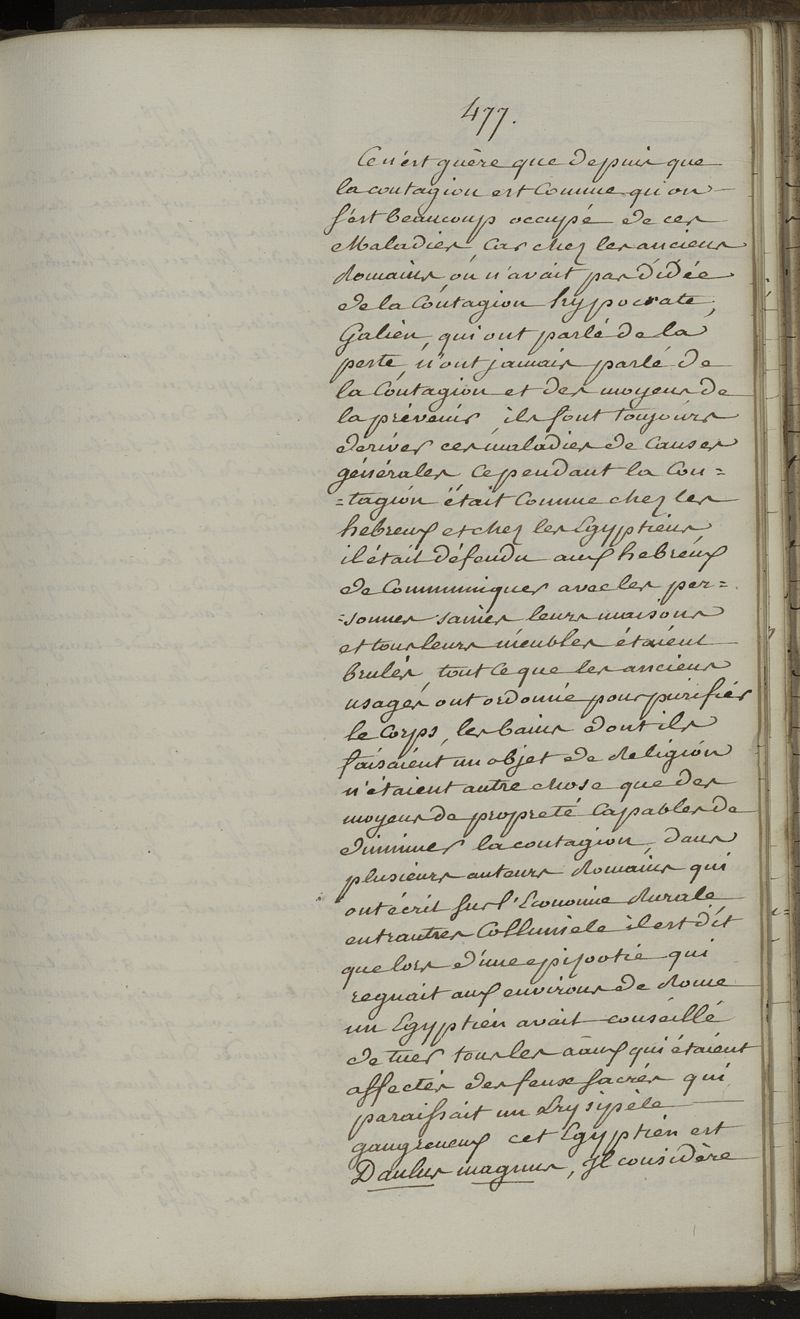 477.
Ce n'est guère que depuis que
la contagion est Connue qu'on
s'est beaucoup occupé de ces
Maladies, Car chez les anciens
Romains on n'avait pas d'idée
de la Contagion hypocrate,
Galien, qui ont parlé de la
peste, n'ont jamais parlé de
la Contagion et des moyens de
la prévenir, ils font toujours
deriver ces maladies de Causes
générales Cependant la Con=
=tagion était Connue chez les
hebreux et chez les Egyptiens
il était défendu aux hebreux
de Communiquer avec les per=
=sonnes saines leurs maisons
et tous leurs meubles étaient
brulés, tout ce que les anciens
usages ont ordonné pour purifier
le Corps, les bains dont ils
faisaient un objet de Religion
n'étaient autre chose que des
moyens de propreté Capables de
diminuer la contagion, dans
plusieurs auteurs Romains qui
ont écrit sur l'Economie Rurale
entrautres Collumele il est dit
que lors d'une epizootie qui
regnait aux environs de Rome
un Egyptien avait conseillé
de tuer tous les aaux qui étaient
affectés des feux sacrés qui
paraissait un Erysipèle
gangreneux cet Egyptien est
Daulus magnus, Il considère